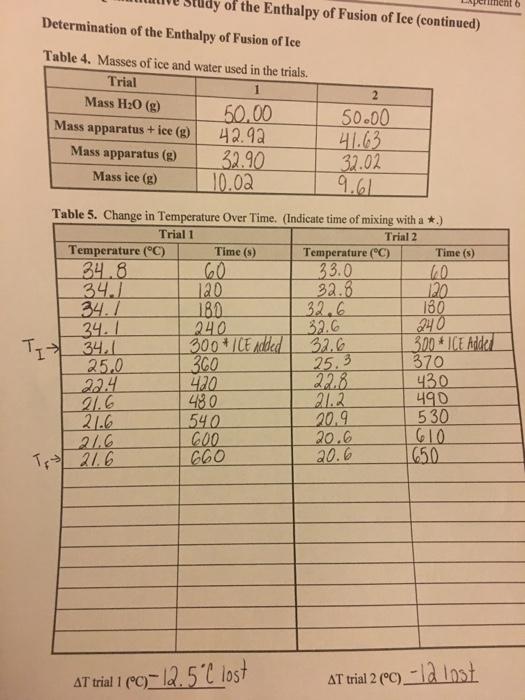 Study of the Enthalpy of Fusion of Ice (continued)
Experiment 6
Determination of the Enthalpy of Fusion of Ice
Table 4. Masses of ice and water used in the trials.
Trial 1 2
Mass H₂O (g) 50.00 50.00
Mass apparatus + ice (g) 42.92 41.63
Mass apparatus (g) 32.90 32.02
Mass ice (g) 10.02 9.61
Table 5. Change in Temperature Over Time. (Indicate time of mixing with a ★.)
Trial 1 Trial 2
Temperature (°C) Time (s) Temperature (°C) Time (s)
34.8 60 33.0 60
34.1 120 32.8 120
34.1 180 32.6 180
34.1 240 32.6 240
T_I → 34.1 300 * ICE Added 32.6 300 * ICE Added
25.0 360 25.3 370
22.4 420 22.8 430
21.6 480 21.2 490
21.6 540 20.9 530
21.6 600 20.6 610
T_F → 21.6 660 20.6 650
ΔT trial 1 (°C) -12.5°C lost ΔT trial 2 (°C) -12 lost